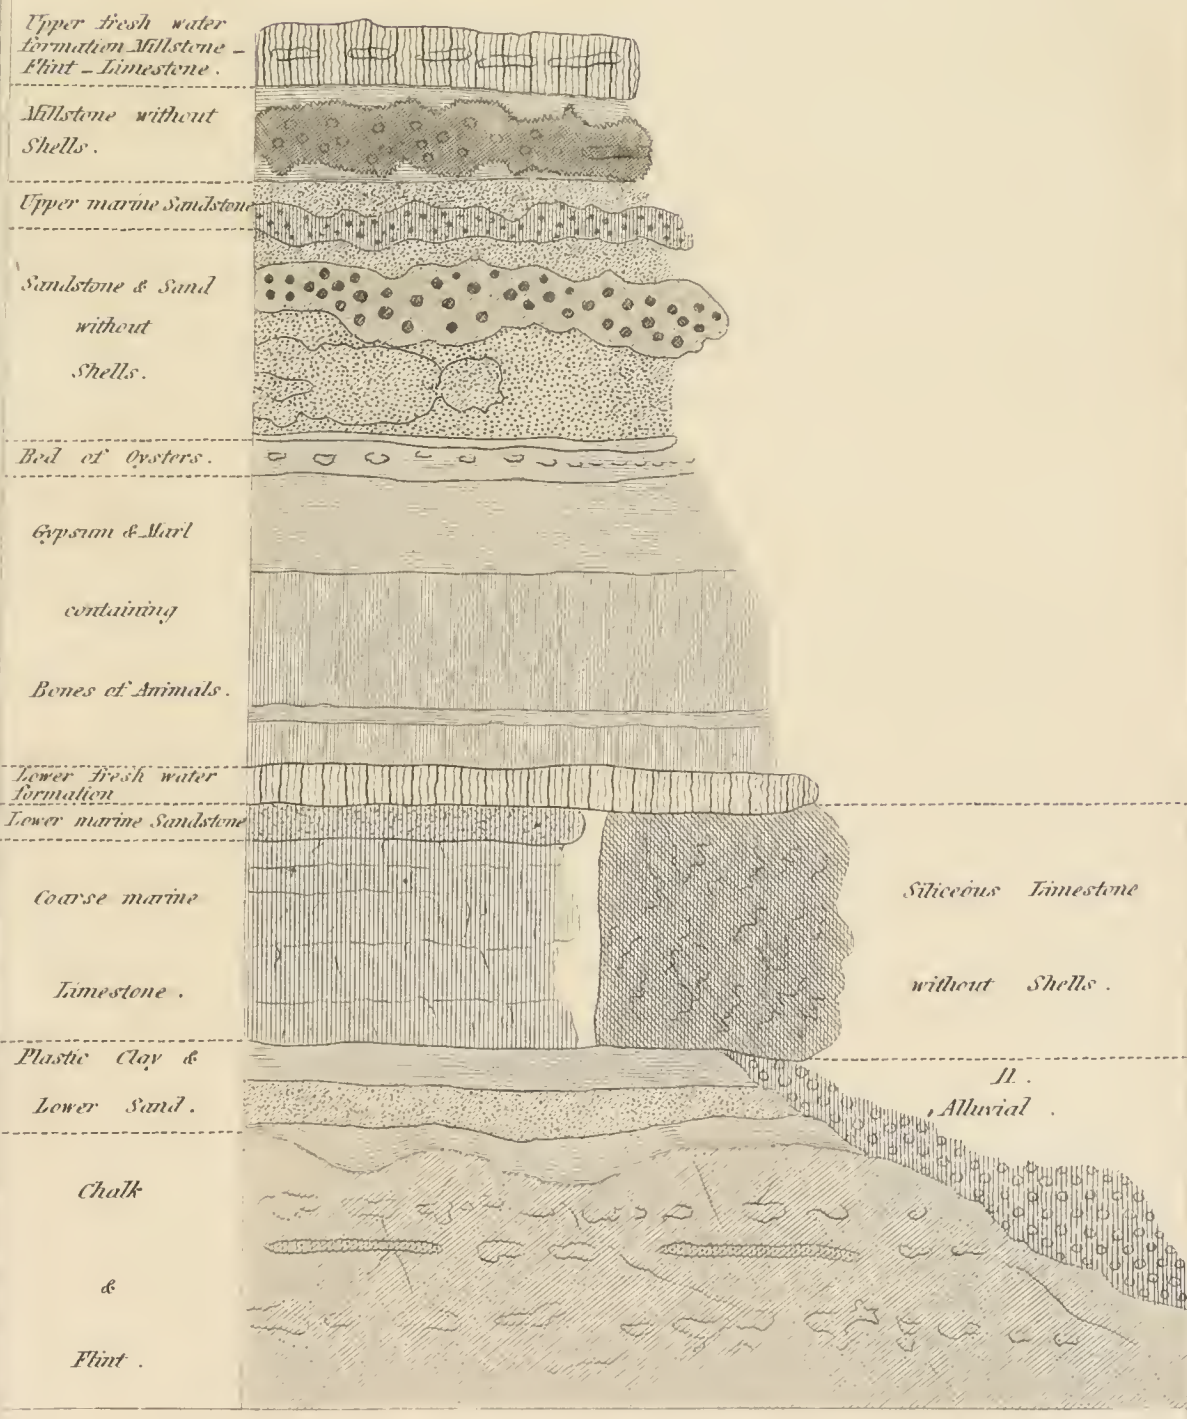 Upper fresh water
formation Millstone –
Flint – Limestone .
Millstone without
Shells .
Upper marine Sandstone
Sandstone & Sand
without
Shells .
Bed of Oysters .
Gypsum & Marl
containing
Bones of Animals .
Lower fresh water
formation
Lower marine Sandstone
Coarse marine
Limestone .
Siliceous Limestone
without Shells .
Plastic Clay &
Lower Sand .
11 .
Alluvial .
Chalk
&
Flint .